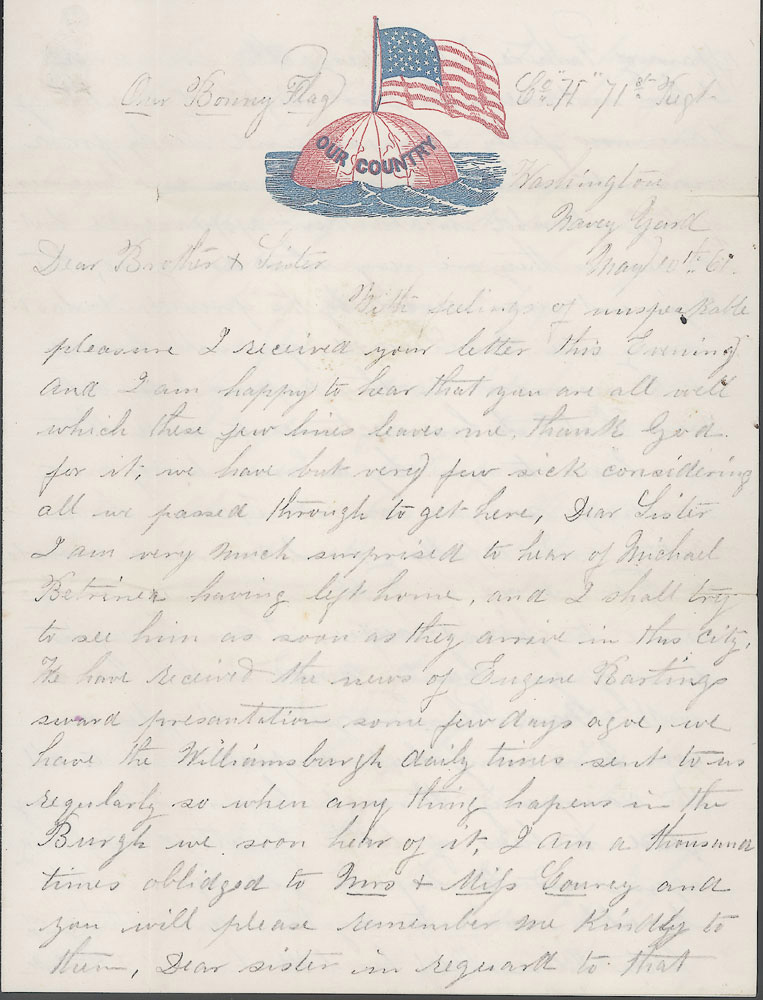 Our Bonny Flag
Co. "H" 71st Regt
OUR COUNTRY
Washington
Navey Yard
May 10th 61.
Dear Brother & Sister
With feelings of unspeakable
pleasure I received your letter this Evening
and I am happy to hear that you are all well
which these few lines leaves me, thank God
for it, we have but very few sick considering
all we passed through to get here, Dear Sister
I am very much surprised to hear of Michael
having left home, and I shall try
to see him as soon as they arrive in this city.
We have received the news of Eugene
sward presantation some few days agoe, we
have the Williamsburgh daily times sent to us
regularly so when any thing hapens in the
Burgh we soon hear of it, I am a thousand
times oblidged to Mrs & Miss and
you will please remember me Kindly to
them, Dear sister in reguard to that